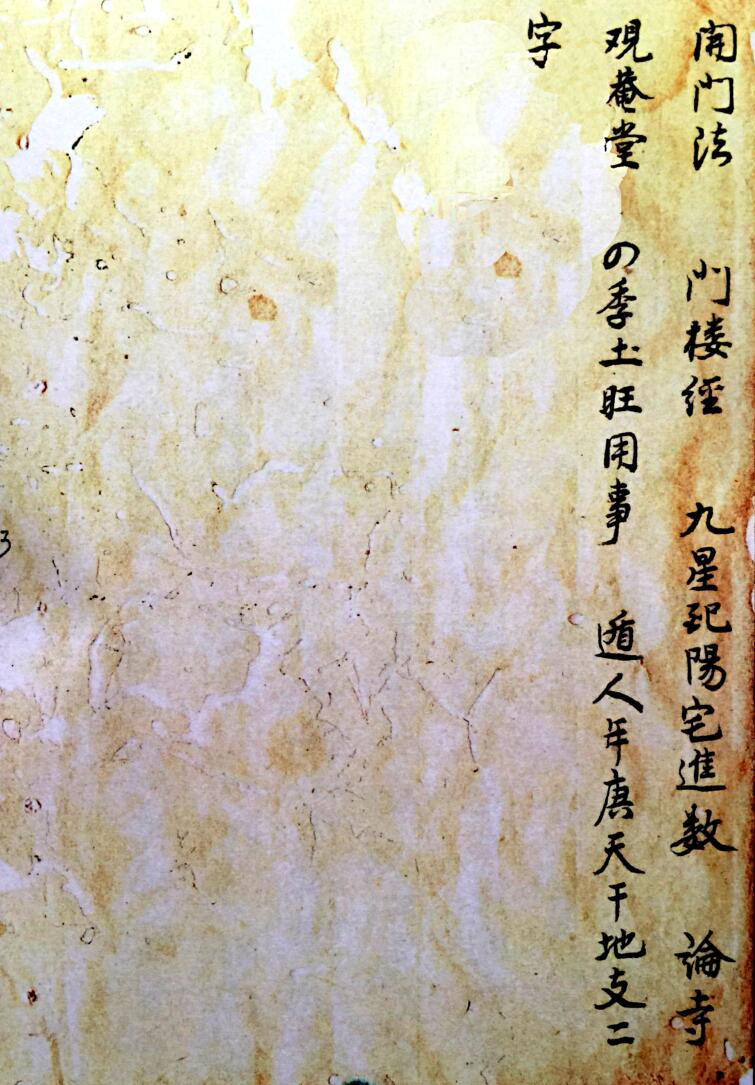 開門法　門楼經　九星配陽宅進数　論寺
观菴堂　の季土旺用事　遁人年庚天干地支二
字